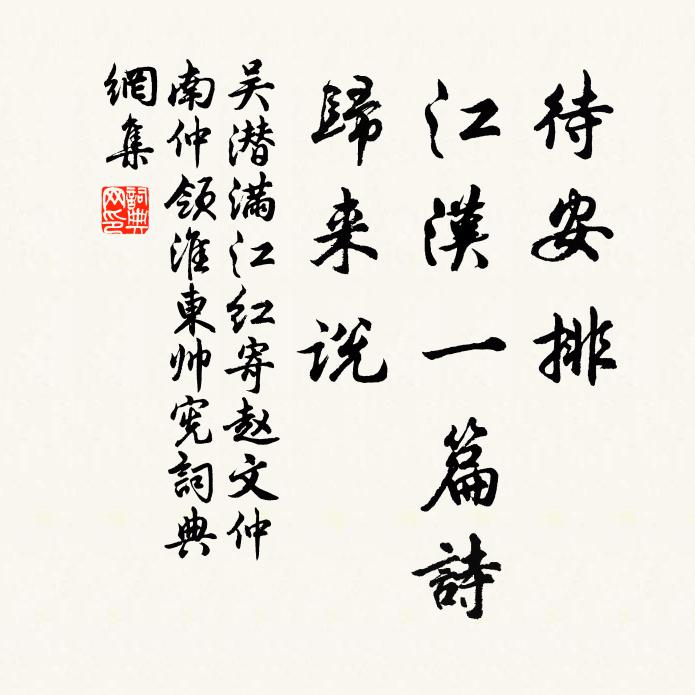 待安排
江漢一篇詩
歸来说
吴潜满江红寄赵文仲
南仲领淮東帅宪詞典
網集
詞典
网印